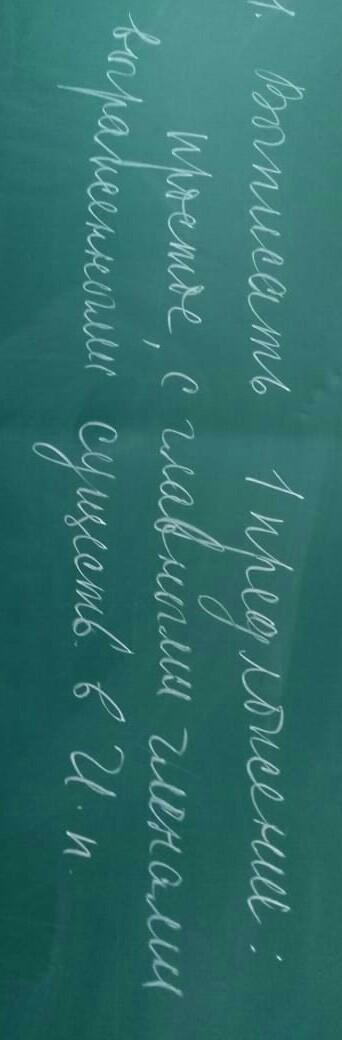 1. Выписать 1 предложений:
простое, с главными членами
выраженными существ. в И. п.